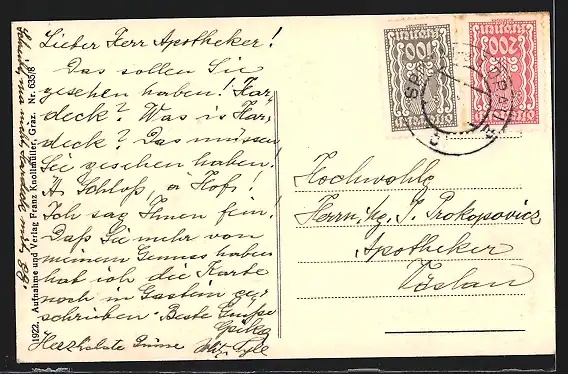 Lieber Herr Apotheker!
Das sollen Sie
gesehen haben! Kar-
deck? Was is Kar-
deck? Das müssen
Sie gesehen haben!
A Schloß, a Hof!
Ich sag Ihnen fein!
Daß Sie mehr von
meinem Genuss haben
hab ich die Karte
noch in Gastein ge-
schrieben. Beste Grüße
Herzlichste Grüsse
Hochwohlg
Herrn J. Prokopovicz
Apotheker
Vöslau
1922. Aufnahme und Verlag Franz Knollmüller, Graz. Nr. 635/8
100
200